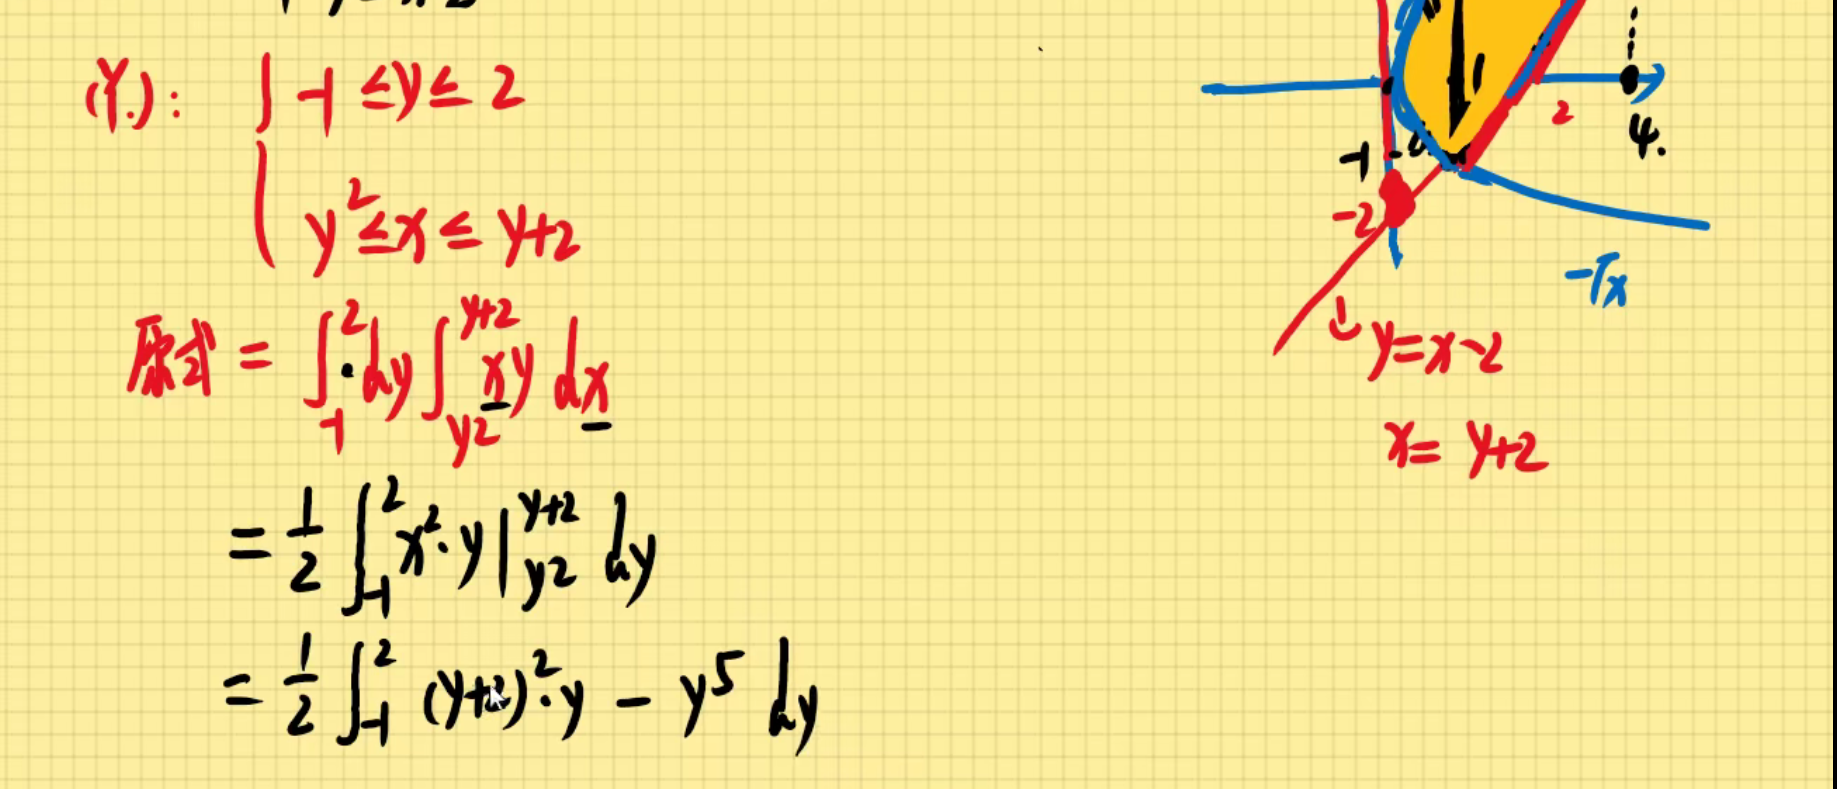 (Y.): { -1 ≤ y ≤ 2
y² ≤ x ≤ y+2
原式 = ∫_{-1}^{2} dy ∫_{y²}^{y+2} xy dx
= 1/2 ∫_{-1}^{2} x²·y |_{y²}^{y+2} dy
= 1/2 ∫_{-1}^{2} (y+2)²·y - y⁵ dy
2
4.
-1
-2
-√x
y=x-2
x= y+2